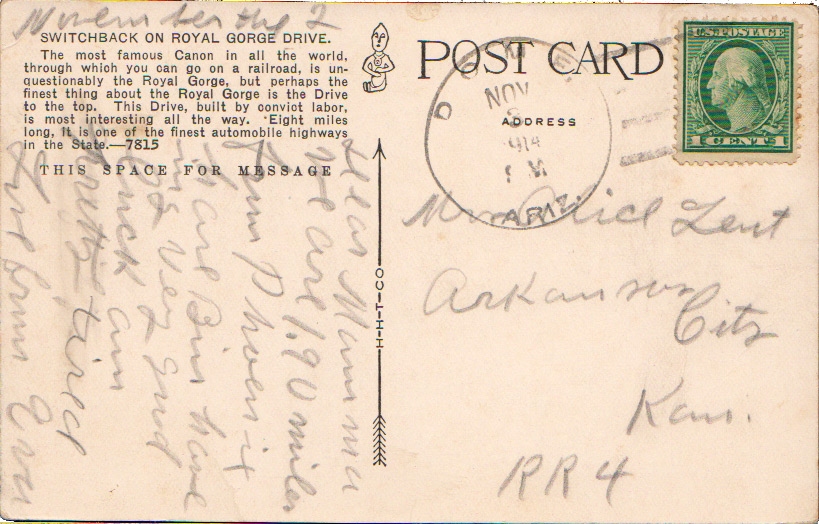 November the 2
SWITCHBACK ON ROYAL GORGE DRIVE.
The most famous Canon in all the world,
through which you can go on a railroad, is un-
questionably the Royal Gorge, but perhaps the
finest thing about the Royal Gorge is the Drive
to the top. This Drive, built by convict labor,
is most interesting all the way. Eight miles
long, it is one of the finest automobile highways
in the State.—7815
THIS SPACE FOR MESSAGE
Dear Mamma
we are 190 miles
from Phoenix
have
ing very good
luck am
pretty tired
love from Eva
H-H-T-CO
POST CARD
ADDRESS
NOV
1914
M
ARIZ.
U.S. POSTAGE
1 CENT 1
Mrs Alice Lent
Arkansas
City
Kans.
RR 4